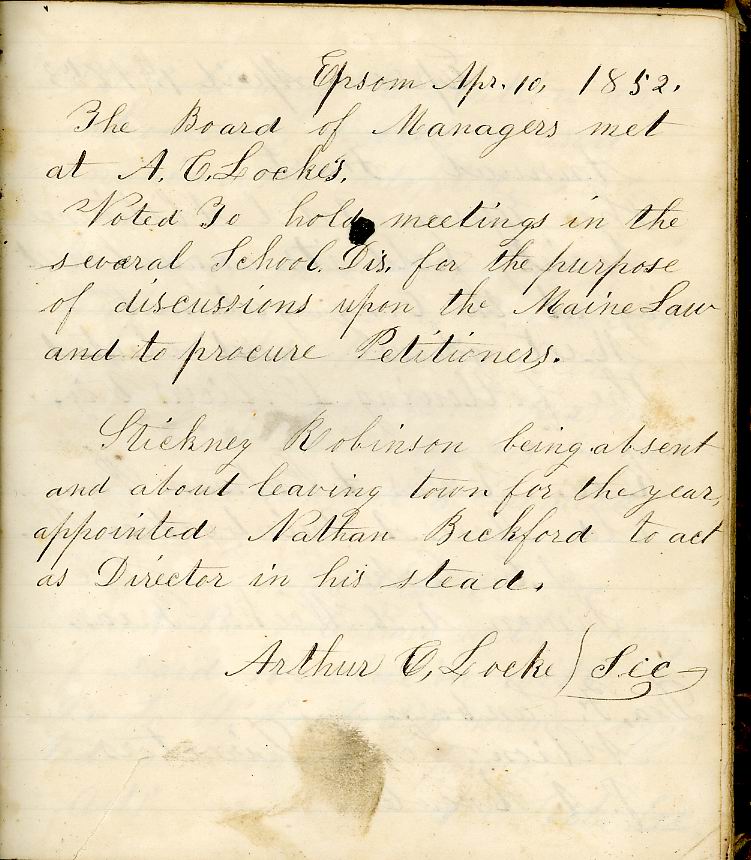 Epsom Apr. 10, 1852.
The Board of Managers met
at A. C. Locke's.
Voted To hold meetings in the
several School. Dis. for the purpose
of discussions upon the Maine Law
and to procure Petitioners.
Stickney Robinson being absent
and about leaving town for the year,
appointed Nathan Bickford to act
as Director in his stead.
Arthur C. Locke } Sec